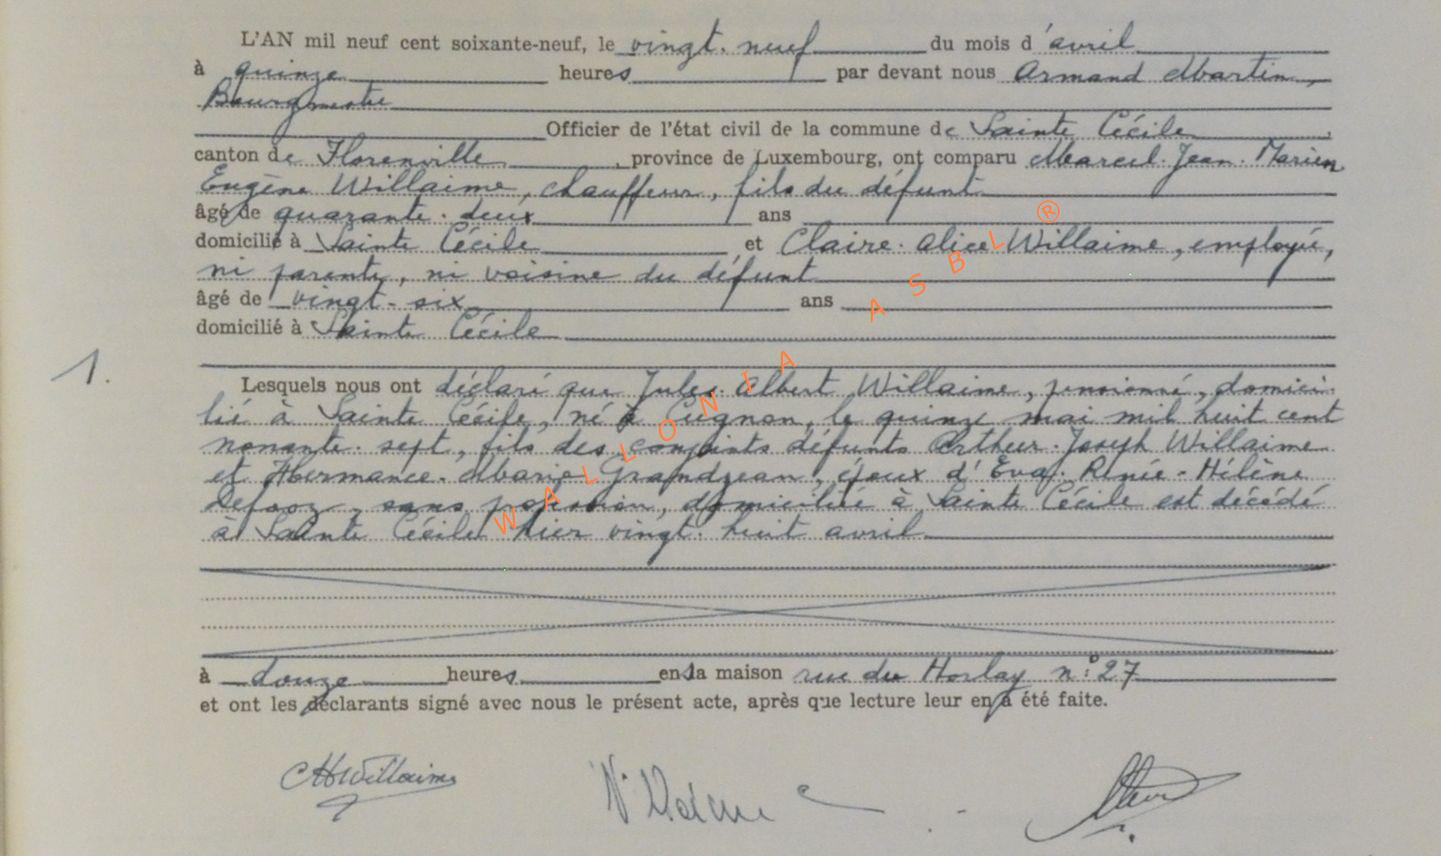 L'AN mil neuf cent soixante-neuf, le vingt-neuf du mois d'avril
à quinze heures par devant nous Armand Martin,
Bourgmestre
Officier de l'état civil de la commune de Sainte Cécile,
canton de Florenville, province de Luxembourg, ont comparu Marcel-Jean-Marien
Eugène Willaime, chauffeur, fils du défunt
âgé de quarante-deux ans
domicilié à Sainte Cécile et Claire-Alice Willaime, employée,
ni parente, ni voisine du défunt
âgé de vingt-six ans
domicilié à Sainte Cécile
1.
Lesquels nous ont déclaré que Jules-Albert Willaime, pensionné, domici-
lié à Sainte Cécile, né à Cugnon, le quinze mai mil huit cent
nonante-sept, fils des conjoints défunts Arthur-Joseph Willaime
et Hermance-Marie Grandjean, époux d'Eva-Renée-Hélène
sans profession, domiciliée à Sainte Cécile est décédé
à Sainte Cécile hier vingt-huit avril
à douze heures en la maison rue du Horlay n° 27
et ont les déclarants signé avec nous le présent acte, après que lecture leur en a été faite.
Willaime
WALLONIA ASBL ®